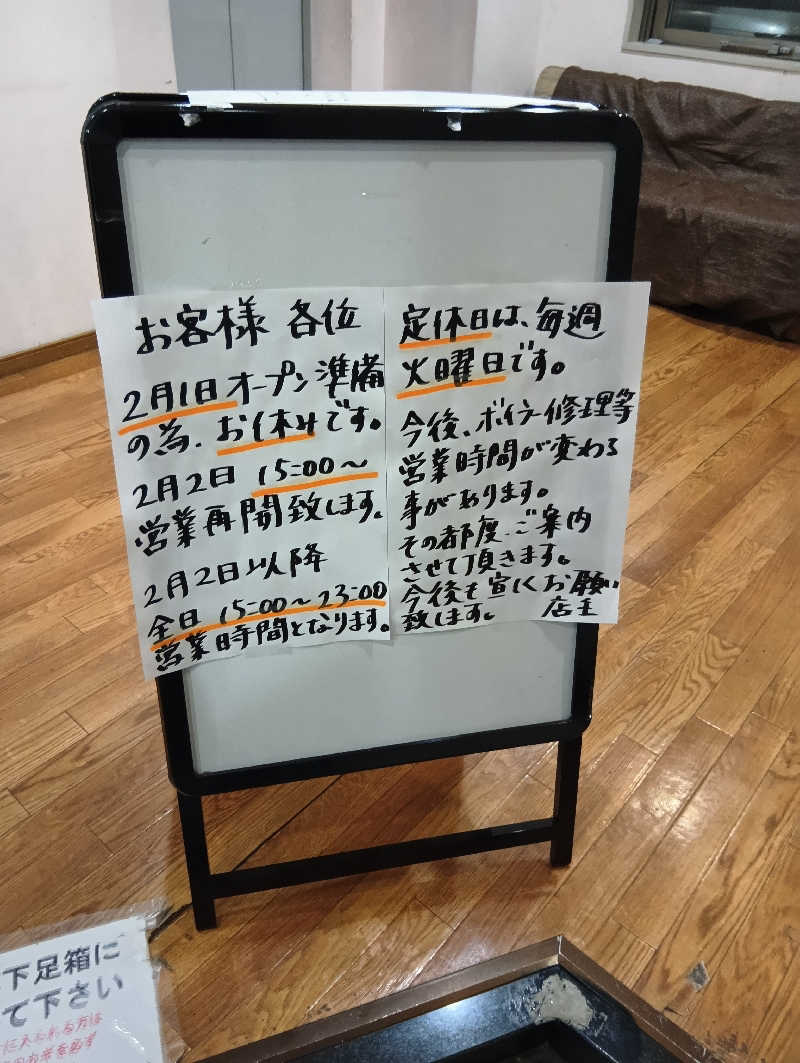 お客様 各位
2月1日オープン準備
の為、お休みです。
2月2日 15:00〜
営業再開致します。
2月2日以降
全日 15:00〜23:00
営業時間となります。
定休日は、毎週
火曜日です。
今後、ボイラー修理等
営業時間が変わる
事があります。
その都度、ご案内
させて頂きます。
今後も宜しくお願い
致します。 店主
下足箱に
て下さい